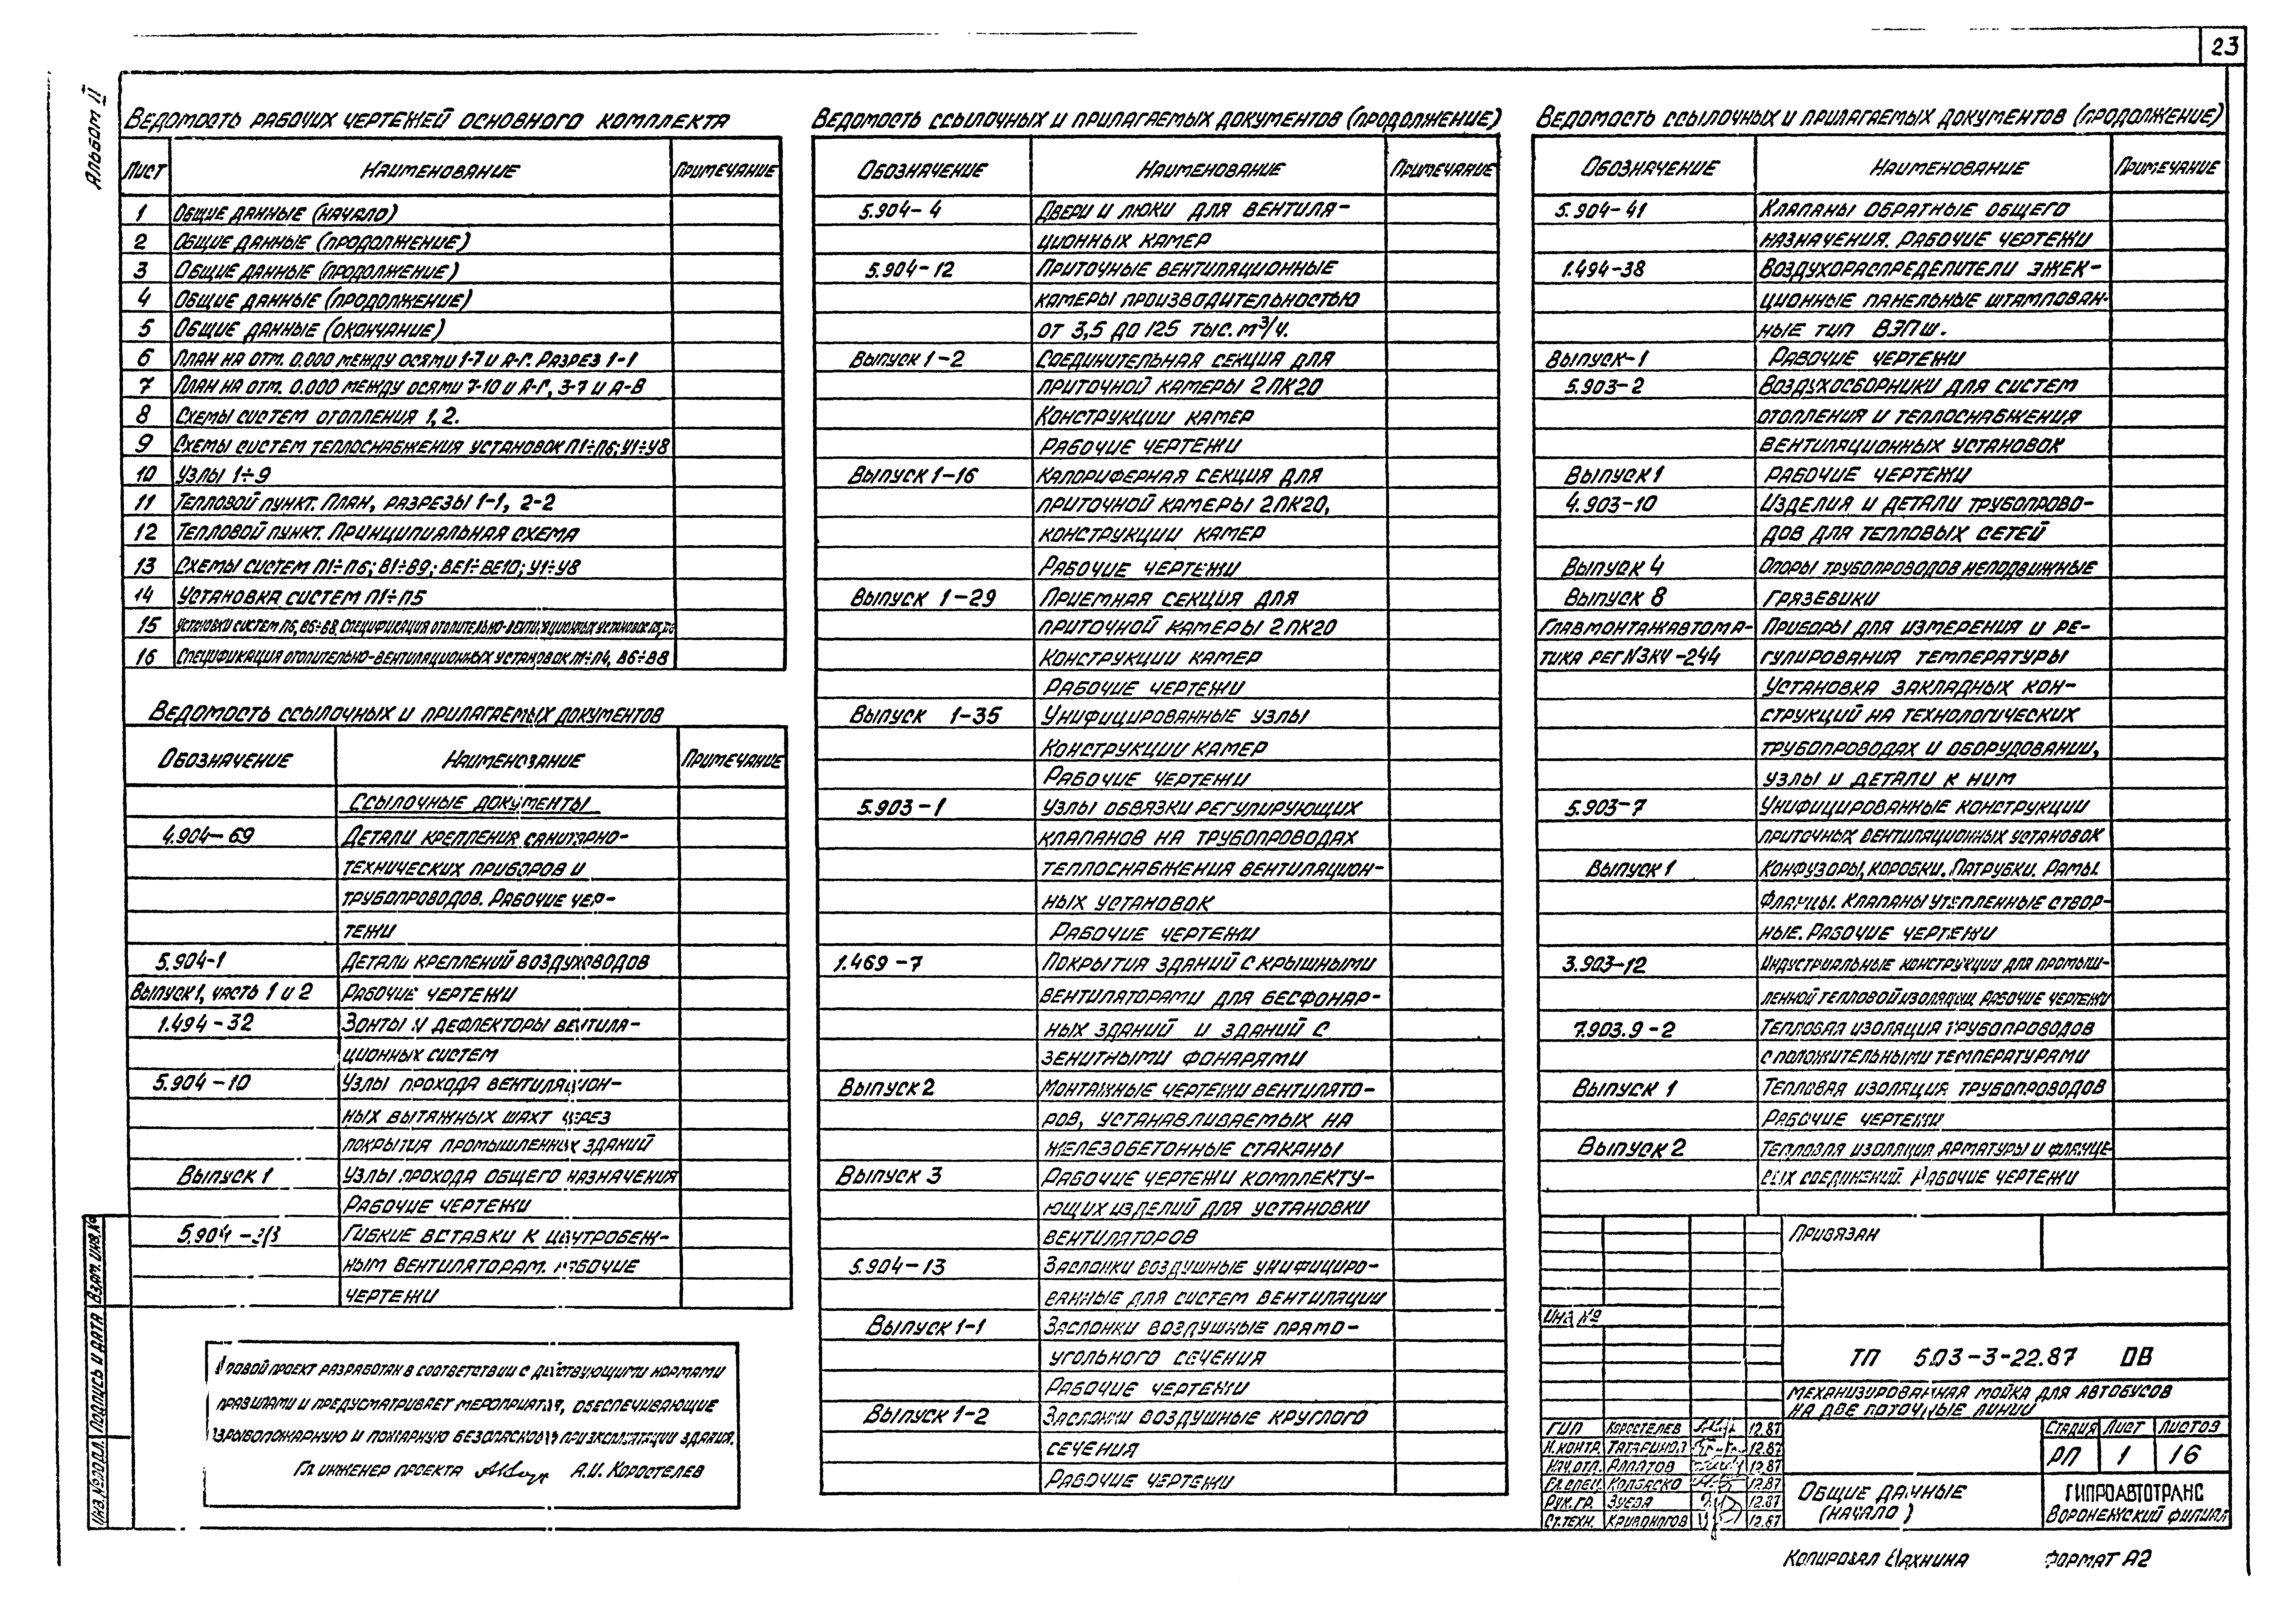 23
Альбом II
Ведомость рабочих чертежей основного комплекта
Лист Наименование Примечание
1 Общие данные (начало)
2 Общие данные (продолжение)
3 Общие данные (продолжение)
4 Общие данные (продолжение)
5 Общие данные (окончание)
6 План на отм. 0.000 между осями 1-7 и А-Г. Разрез 1-1
7 План на отм. 0.000 между осями 7-10 и А-Г, 3-7 и А-В
8 Схемы систем отопления 1, 2.
9 Схемы систем теплоснабжения установок П1÷П6; У1÷У8
10 Узлы 1÷9
11 Тепловой пункт. План, разрезы 1-1, 2-2
12 Тепловой пункт. Принципиальная схема
13 Схемы систем П1÷П6; В1÷В9; ВЕ1÷ВЕ10; У1÷У8
14 Установка систем П1÷П5
15 Установки систем П6, В6÷В8. Спецификация отопительно-вентиляционных установок
16 Спецификация отопительно-вентиляционных установок П1÷П4, В6÷В8
Ведомость ссылочных и прилагаемых документов
Обозначение Наименование Примечание
Ссылочные документы
4.904-69 Детали крепления санитарно-
технических приборов и
трубопроводов. Рабочие чер-
тежи
5.904-1 Детали креплений воздуховодов
Выпуск 1, часть 1 и 2 Рабочие чертежи
1.494-32 Зонты и дефлекторы вентиля-
ционных систем
5.904-10 Узлы прохода вентиляцион-
ных вытяжных шахт через
покрытия промышленных зданий
Выпуск 1 Узлы прохода общего назначения
Рабочие чертежи
Гибкие вставки к центробеж-
ным вентиляторам. Рабочие
чертежи
повой проект разработан в соответствии с действующими нормами
правилами и предусматривает мероприятия, обеспечивающие
взрывопожарную и пожарную безопасность при эксплуатации здания.
Гл инженер проекта А.И. Коростелев
Ведомость ссылочных и прилагаемых документов (продолжение)
Обозначение Наименование Примечание
5.904-4 Двери и люки для вентиля-
ционных камер
5.904-12 Приточные вентиляционные
камеры производительностью
от 3,5 до 125 тыс. м³/ч.
Выпуск 1-2 Соединительная секция для
приточной камеры 2ПК20
Конструкции камер
Рабочие чертежи
Выпуск 1-16 Калориферная секция для
приточной камеры 2ПК20,
конструкции камер
Рабочие чертежи
Выпуск 1-29 Приемная секция для
приточной камеры 2ПК20
Конструкции камер
Рабочие чертежи
Выпуск 1-35 Унифицированные узлы
Конструкции камер
Рабочие чертежи
5.903-1 Узлы обвязки регулирующих
клапанов на трубопроводах
теплоснабжения вентиляцион-
ных установок
Рабочие чертежи
1.469-7 Покрытия зданий с крышными
вентиляторами для бесфонар-
ных зданий и зданий с
зенитными фонарями
Выпуск 2 Монтажные чертежи вентилято-
ров, устанавливаемых на
железобетонные стаканы
Выпуск 3 Рабочие чертежи комплекту-
ющих изделий для установки
вентиляторов
5.904-13 Заслонки воздушные унифициро-
ванные для систем вентиляции
Выпуск 1-1 Заслонки воздушные прямо-
угольного сечения
Рабочие чертежи
Выпуск 1-2 Заслонки воздушные круглого
сечения
Рабочие чертежи
Ведомость ссылочных и прилагаемых документов (продолжение)
Обозначение Наименование Примечание
5.904-41 Клапаны обратные общего
назначения. Рабочие чертежи
1.494-38 Воздухораспределители эжек-
ционные панельные штампован-
ные тип ВЭПш.
Выпуск-1 Рабочие чертежи
5.903-2 Воздухосборники для систем
отопления и теплоснабжения
вентиляционных установок
Выпуск 1 Рабочие чертежи
4.903-10 Изделия и детали трубопрово-
дов для тепловых сетей
Выпуск 4 Опоры трубопроводов неподвижные
Выпуск 8 Грязевики
Главмонтажавтома- Приборы для измерения и ре-
тика рег N3К4-244 гулирования температуры
Установка закладных кон-
струкций на технологических
трубопроводах и оборудовании,
узлы и детали к ним
5.903-7 Унифицированные конструкции
приточных вентиляционных установок
Выпуск 1 Конфузоры, коробки. Патрубки. Рамы.
Фланцы. Клапаны утепленные створ-
ные. Рабочие чертежи
3.903-12 Индустриальные конструкции для промыш-
ленной тепловой изоляции. Рабочие чертежи
7.903.9-2 Тепловая изоляция трубопроводов
с положительными температурами
Выпуск 1 Тепловая изоляция трубопроводов
Рабочие чертежи
Выпуск 2 Тепловая изоляция арматуры и фланце-
вых соединений. Рабочие чертежи
Привязан
Инв №
ТП 503-3-22.87 ОВ
Механизированная мойка для автобусов
на две поточные линии
Стадия Лист Листов
РП 1 16
ГИП Коростелев 12.87
Н.контр. 12.87
Нач.отд. 12.87
Гл.спец. 12.87
Рук.гр. Зуева 12.87
Ст.техн. 12.87
Общие данные
(начало)
ГИПРОАВТОТРАНС
Воронежский филиал
Копировал
Формат А2
Взам. инв. №
Подпись и дата
Инв. № подл.